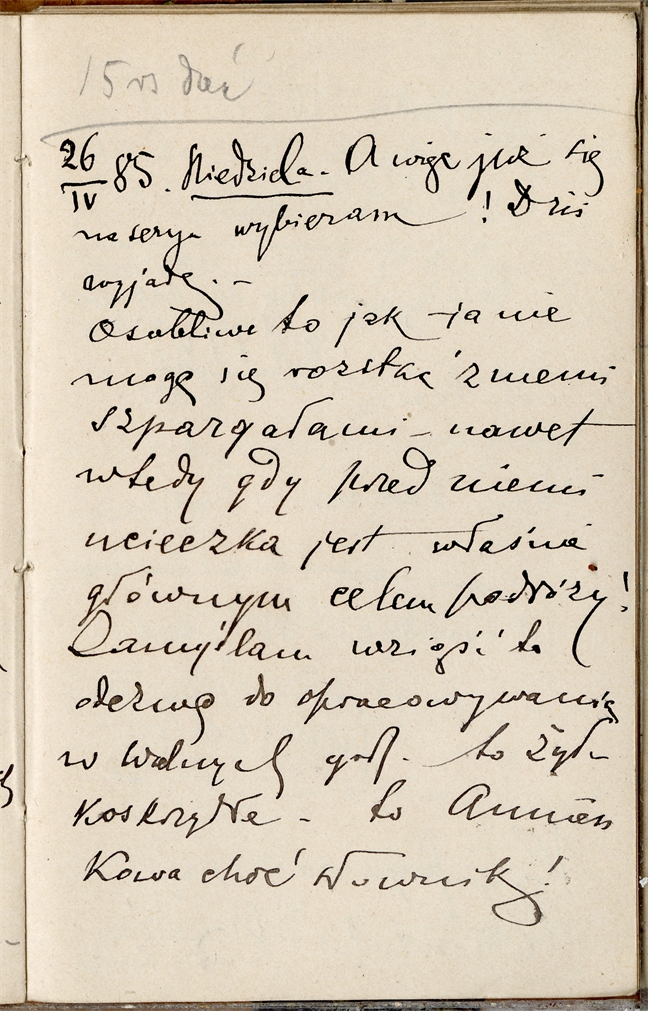 15 rs dać
26/IV 85. Niedziela. - A więc już się
na seryo wybieram! Dziś
wyjadę. -
Osobliwe to jak ja nie
mogę się rozstać z memi
szpargałami - nawet
wtedy gdy przed niemi
ucieczka jest właśnie
głównym celem podróży!
Zamyślam wziąść to
odezwę do opracowywania
w wolnych god. - to
- to
choć słownik!